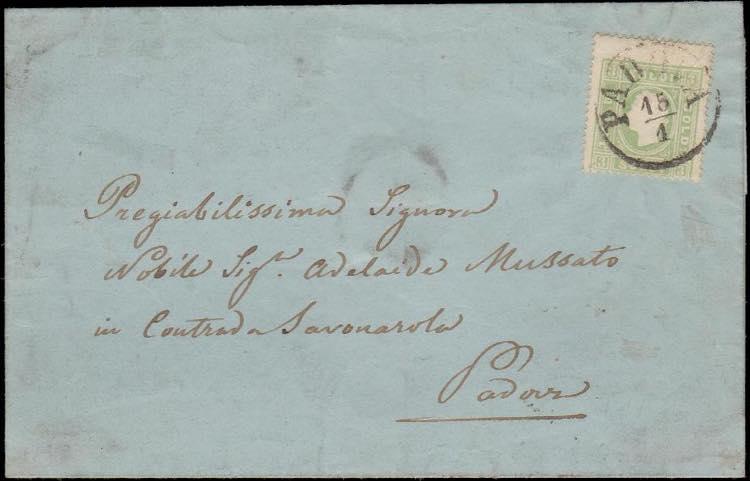 PADOVA
15/1
3 SOLDI 3
SOLDI
3 3
Pregiabilissima Signora
Nobile Sigᵃ. Adelaide Mussato
in Contrada Savonarola
Padova